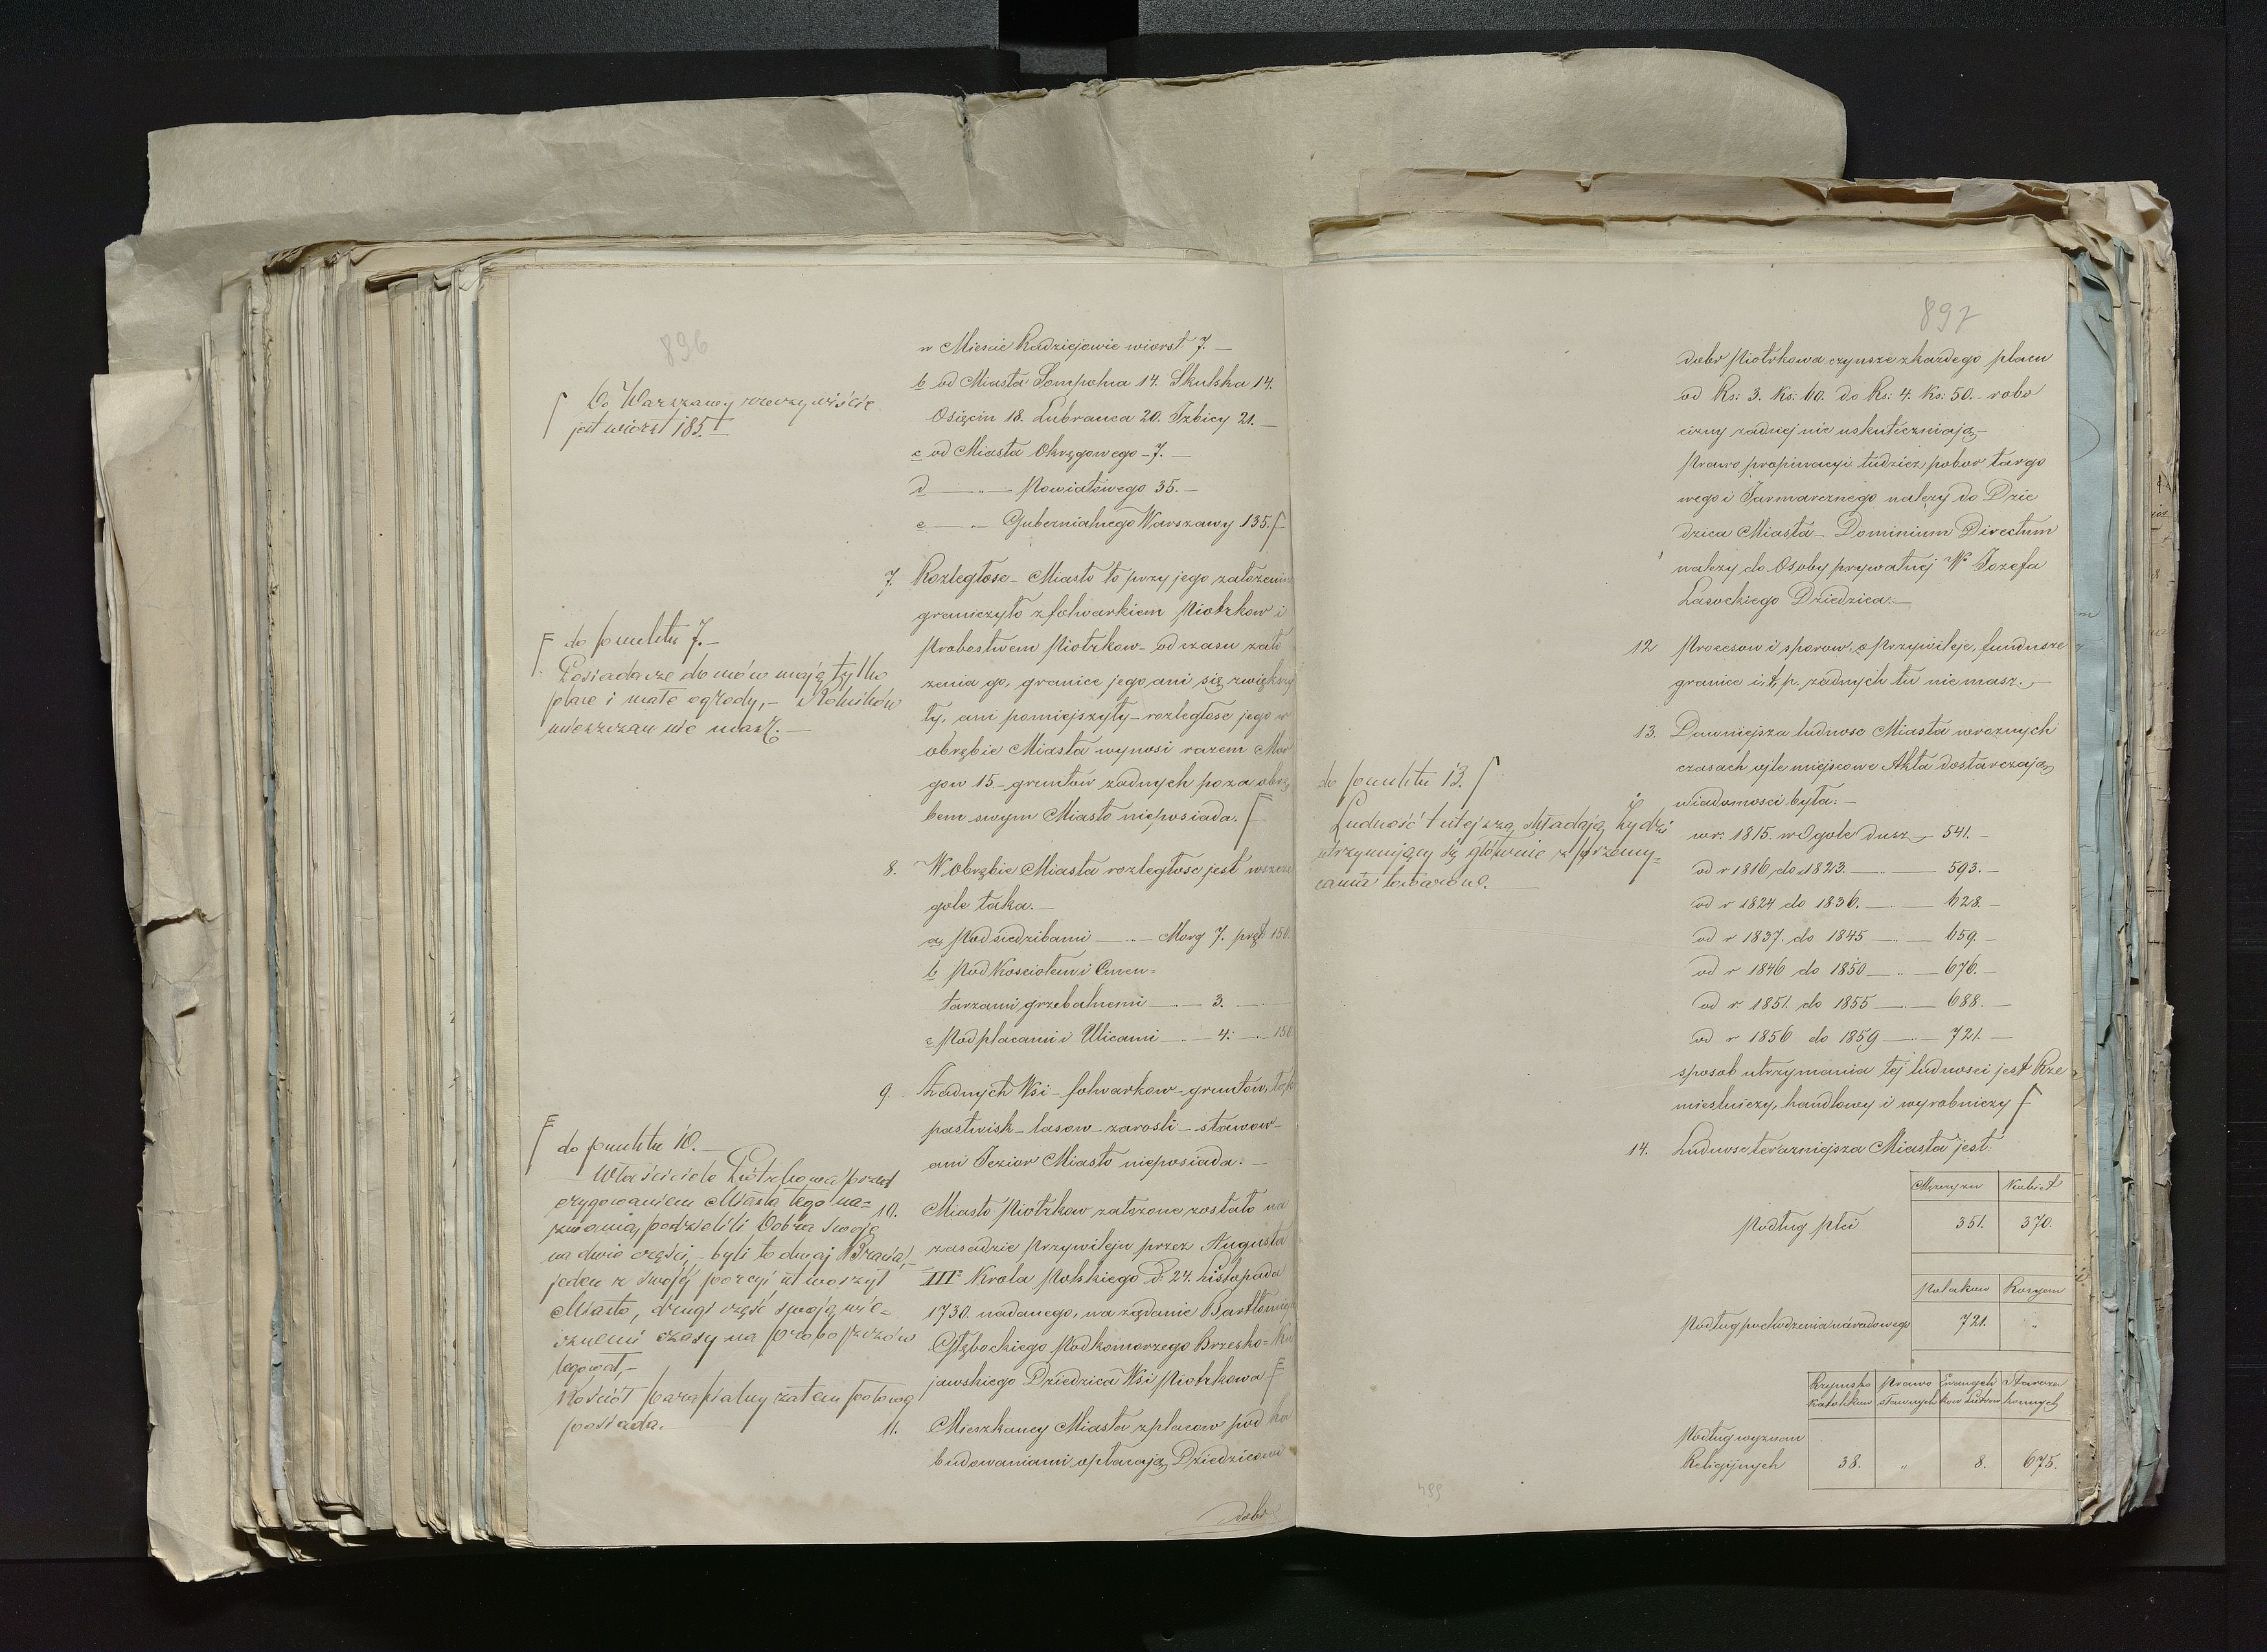 896
Do Warszawy rzeczywiście
jest wiorst 185.
do punktu 7.-
Posiadacze domów mają tylko
place i małe ogrody,- Rolników
mieszczan nie masz.-
do punktu 10.-
Właściciele Piotrkowa przed
erygowaniem Miasta tego na=
zwania, podzielili Dobra swoje
na dwie części,- byli to dwaj Bracia,-
jeden z swojéj porcyi utworzył
Miasto, drugi część swoją wie=
cznemi czasy na proboszczów
legował,-
Kościół parafialny zatem połowę
posiada.-
w Miescie Radziejowie wiorst 7.-
b od Miasta Sompolna 14. Skulska 14.
Osięcin 18. Lubranca 20. Izbicy 21.-
c od Miasta Okręgowego - 7.-
d -"- Powiatowego 35.-
e -"- Gubernialnego Warszawy 135.
7. Rozległosc - Miasto to przy jego założeniu
graniczyło z folwarkiem Piotrkow i
Probostwem Piotrkow - od czasu zało
zenia go, granice jego ani się zwiększy
ły, ani pomiejszyły - rozległosc jego w
obrębie Miasta wynosi razem Mor
gow 15. - gruntów zadnych poza obrę
bem swym Miasto nieposiada.
8. W obrębie Miasta rozległosc jest wszcze
gole taka.-
a, Pod siedzibami -"- Morg 7. pręt: 150.
b Pod Kosciołem i Cmen=
tarzami grzebalnemi -"- 3. -"-
c Pod placami i Ulicami -"- 4. -"- 150
9. Żadnych Wsi - folwarkow - gruntow, łąk
pastwisk - lasow - zarosli - stawow -
ani Jezior Miasto nieposiada.-
10. Miasto Piotrkow założone zostało na
zasadzie Przywileju przez Augusta
III Krola Polskiego d: 24. Listopada
1730. nadanego, na ządanie Bartłomieja
Głębockiego Podkomorzego Brzesko=Ku
jawskiego Dziedzica Wsi Piotrkowa
11. Mieszkancy Miasta z placow pod za
budowaniami opłacają Dziedzicowi
dobr
897
do punktu 13.
Ludność tutejszą składają żydzi
utrzymujący się głównie z przemy=
cania towarów.
dobr Piotrkowa czynsze z kazdego placu
od Rs: 3. Ks: 60. do Rs: 4. Ks: 50. - robo
cizny zadnej nie uskuteczniają -
Prawo propinacyi tudzież pobor targo
wego i Jarmarcznego nalezy do Dzie
dzica Miasta - Dominium Directum
nalezy do Osoby prywatnej Wo Jozefa
Lasockiego Dziedzica.-
12 Procesow i sporow, o Przywileje, fundusze
granice i, t, p. zadnych tu niemasz.-
13. Dawniejsza ludnosc Miasta w roznych
czasach o ile miejscowe Akta dostarczają
wiadomosci była:-
w r: 1815. w Ogole dusz - 541.-
od r 1816 do 1823. -"- 593.-
od r 1824 do 1836. -"- 628.-
od r 1837. do 1845 -"- 659.-
od r 1846 do 1850 -"- 676.-
od r. 1851. do 1855 -"- 688.-
od r 1856 do 1859 -"- 721.-
sposob utrzymania tej ludnosci jest Rze
mieslniczy, handlowy i wyrobniczy
14. Ludnosc terazniejsza Miasta jest:
Mężczyzn Kobiet
Podług płci 351. 370.
Polakow Rosyan
Podług pochodzenia narodowego 721. "
Rzymsko Prawo Ewangeli Staroza
Katolikow sławnych kow Lutrow konnych
Podług wyznan
Religijnych 38. " 8. 675.
499